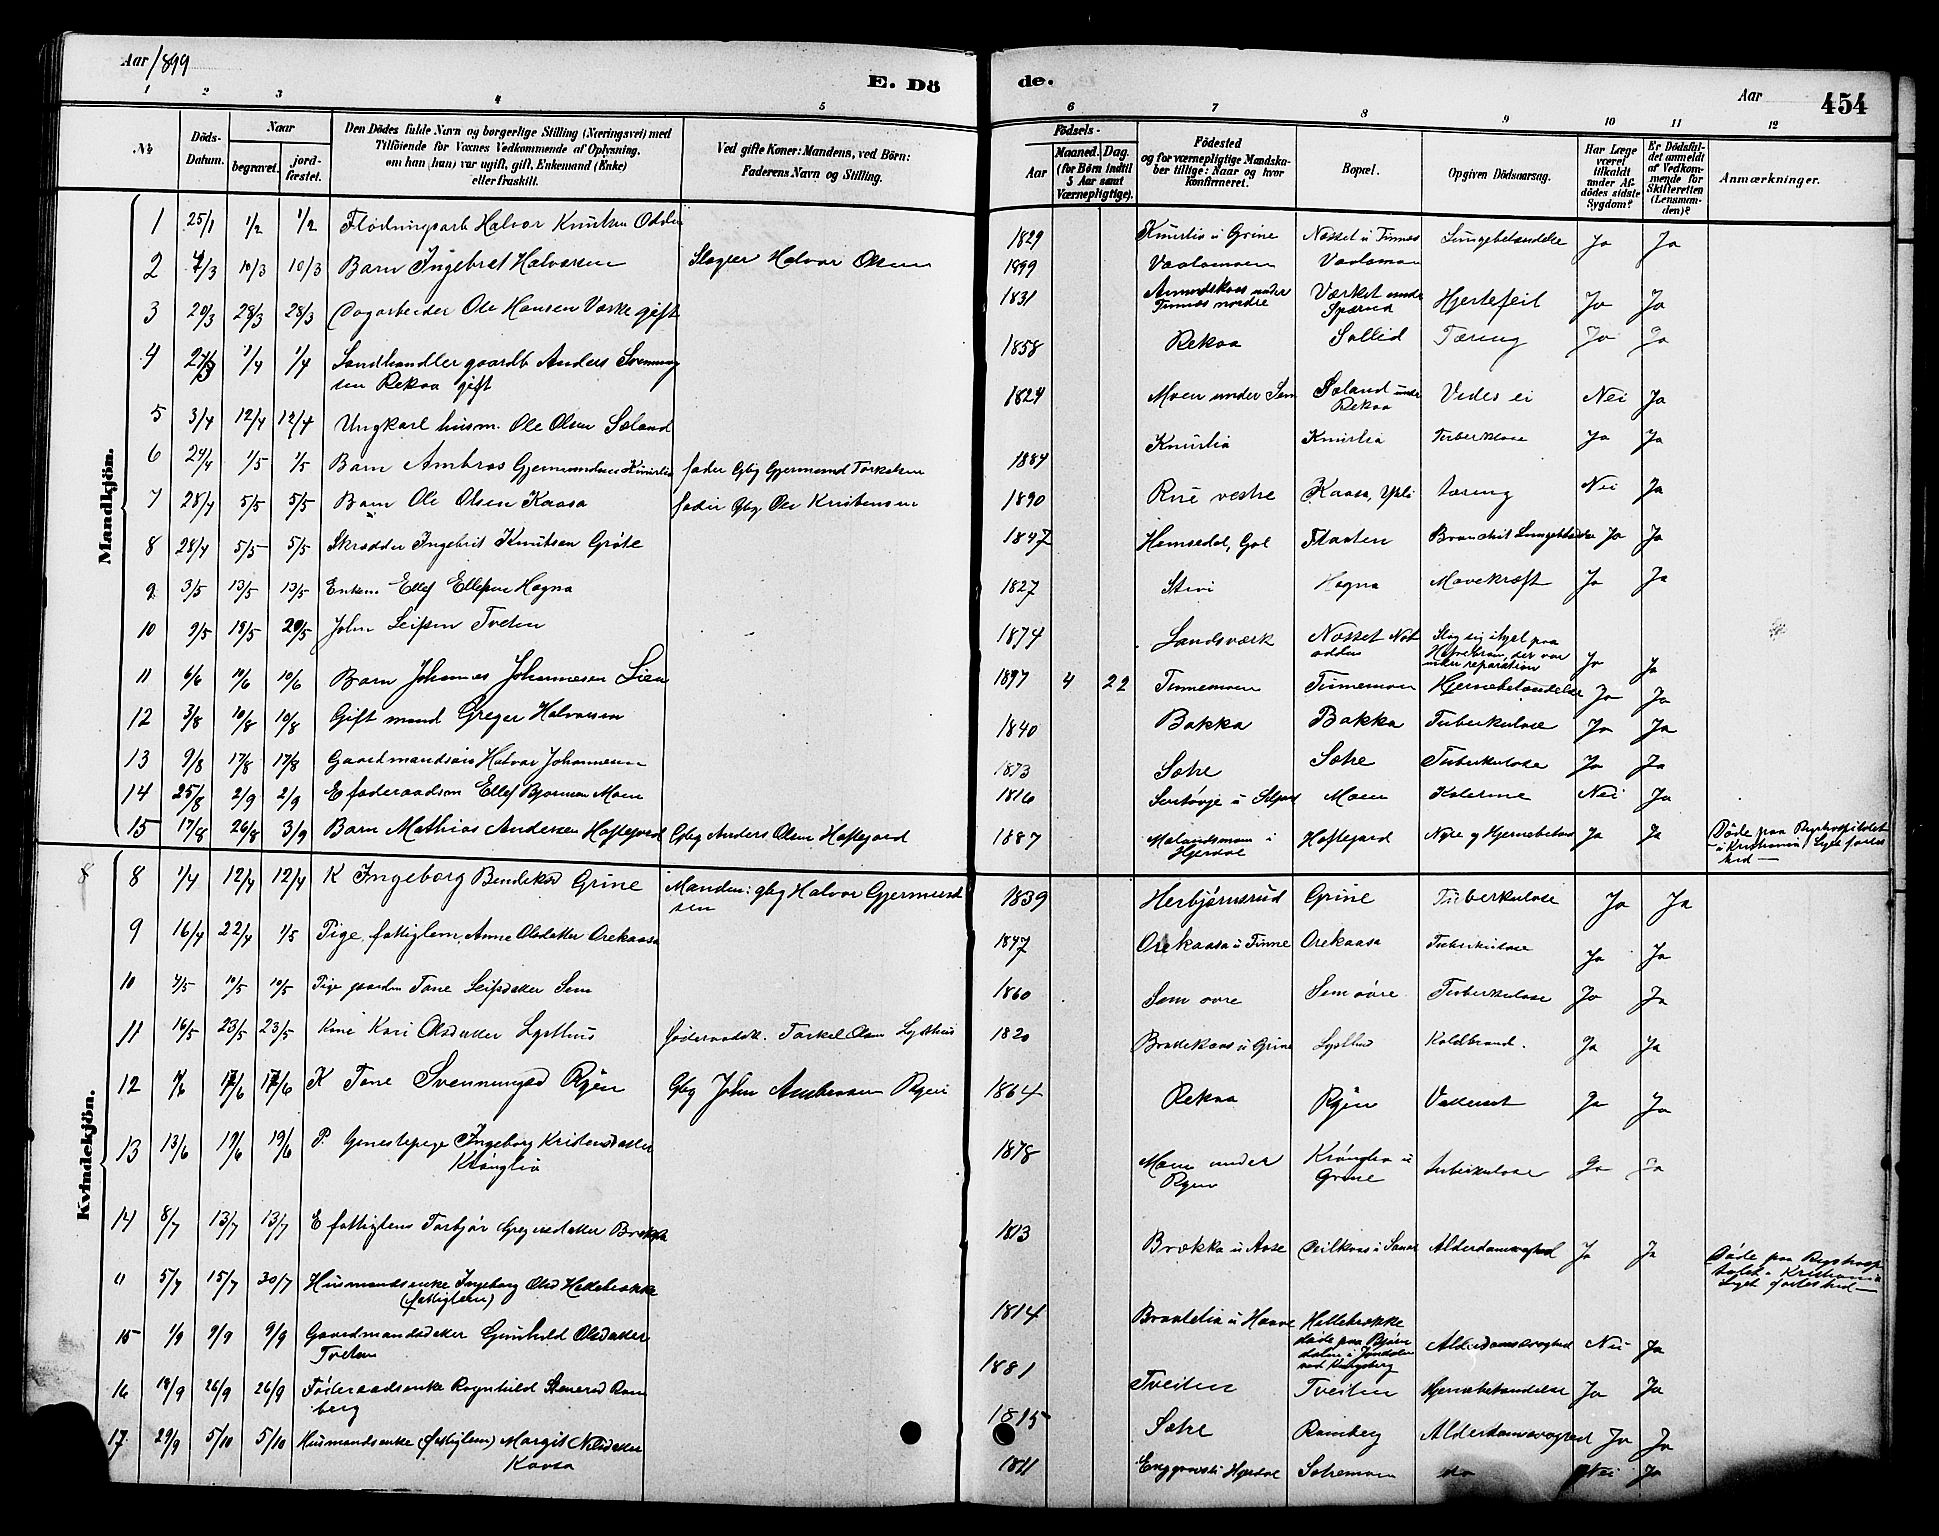 Aar 1899
E. Dö
de.
Aar
454
1 2 3 4 5 6 7 8 9 10 11 12
No.
Döds-Datum.
Naar
begravet.
jordfæstet.
Den Dödes fulde Navn og borgerlige Stilling (Næringsvei) med
Tilföiende for Voxnes Vedkommende af Oplysning,
om han (hun) var ugift, gift, Enkemand (Enke)
eller fraskilt.
Ved gifte Koner: Mandens, ved Börn:
Faderens Navn og Stilling.
Födsels-
Aar
Maaned. Dag.
(for Börn indtil
5 Aar samt
Værnepligtige).
Födested
og for værnepligtige Mandskaber tillige: Naar og hvor
Konfirmeret.
Bopæl.
Opgiven Dödsaarsag.
Har Læge
været
tilkaldt
under Afdödes sidste
Sygdom?
Er Dödsfaldet anmeldt
af Vedkommende for
Skifteretten
(Lensmanden)?
Anmærkninger.
Mandkjön.
1 25/1 1/2 1/2 Flödningsarb Halvor Knutsen 1829 Knurlia u Grine Næsset u Tinnes Lungebetændelse Ja Ja
2 4/3 10/3 10/3 Barn Ingebret Halvorsen Slagter Halvor Olsen 1899 Vaalamoen Vaalamoen
3 20/3 28/3 28/3 Dagarbeider Ole Hansen Værke gift 1831 under Tinnæs nordre Værket under Hjertefeil Ja Ja
4 1/4 1/4 Landhandler gaardb Anders Svenningsen Rekaa gift 1858 Rekaa Sollid Tæring Ja Ja
5 3/4 12/4 12/4 Ungkarl husm. Ole Olsen Søland 1824 Moen under Sem Søland under Rekaa Vedes ei Nei Ja
6 24/4 1/5 1/5 Barn Ambros Gjermundsen Knurlia fader Gbg Gjermund Torkelsen 1884 Knurlia Knurlia Tuberkulose Ja Ja
7 28/4 5/5 5/5 Barn Ole Olsen Kaasa fader Gbg Ole Kristensen 1890 Rue vestre Kaasa, Ypli tæring Nei Ja
8 28/4 5/5 5/5 Skrædder Ingebrit Knutsen Gröte 1847 Hemsedal, Gol Flaaten Ja Ja
9 3/5 13/5 13/5 Enkem Ellef Ellefsen Hogna 1827 Hogna Mavekræft Ja Ja
10 9/5 18/5 20/5 John Leifsen Tveten 1874 Landsværk Næsset Notodden Slog sig ihjel paa der var under reparation Ja Ja
11 6/6 10/6 10/6 Barn Johannes Johannesen Lien 1897 4 22 Tinnemoen Tinnemoen Hjernebetændelse Ja Ja
12 3/8 10/8 10/8 Gift mand Greger Halvorsen 1840 Bakka Bakka Tuberkulose Ja Ja
13 9/8 17/8 17/8 Gaardmandsön Halvor Johannesen 1873 Sætre Sætre Tuberkulose Ja Ja
14 25/8 2/9 2/9 E föderaadsm Ellef Bjornsen Moen 1816 Moen Kolerine Nei Ja
15 17/8 26/8 3/9 Barn Mathias Andersen Haftejord Gbg Anders Olsen Haftejord 1887 i Hjerdal Haftejord Nyre og Hjernebetænd Ja Ja Døde paa Rigshospitalet i Kristiania
Kvindekjön.
8
8 1/4 12/4 12/4 K Ingeborg Bendiksd Grine Manden: gbg Halvor Gjermundsen 1839 Herbjørnsrud Grine Tuberkulose Ja Ja
9 16/4 22/4 1/5 Pige, fattiglem, Anne Olsdatter Orekaasa 1847 Orekaasa u Tinne Orekaasa Tuberkulose Ja Ja
10 4/5 10/5 10/5 Pige Tone Leifsdatter Sem 1860 Sem øvre Sem øvre Tuberkulose Ja Ja
11 16/5 23/5 23/5 Kone Kari Olsdatter Lysthus föderaadsk. Torkel Olsen Lysthus 1820 u Grine Lysthus Koldbrand. Ja Ja
12 17/6 17/6 K Tone Svenningsd Ryen Gbg John Ambrosen Ryen 1864 Rekaa Ryen Vattersot Ja Ja
13 13/6 19/6 19/6 P. Ingeborg Kristensdatter Krönglia 1878 Moen under Ryen Krönglia u Grine tuberkulose Ja Ja
14 8/7 13/7 13/7 E fattiglem Torbjör Gregersdatter Brække 1813 Brække u Aase Alderdomssvaghed Ja Ja Døde paa Rigshospitalet i Kristiania
11 5/7 15/7 30/7 Husmandsenke Ingeborg Olsd (fattiglem) 1814 døde paa i Jondalen ved Kongsberg Alderdomssvaghed Nei Ja
15 1/9 9/9 9/9 Gaardmandsdatter Gunhild Olsdatter Tveten 1881 Tveiten Tveiten Hjernebetændelse Ja Ja
16 18/9 26/9 26/9 Föderaadsenke Ragnhild Ramberg 1815 Sætre Ramberg Alderdomssvaghed Ja Ja
17 29/9 5/10 5/10 Husmandsenke (fattiglem) Margit Nilsdatter Kaasa 1811 Hjerdal Sætremoen do Nei Ja